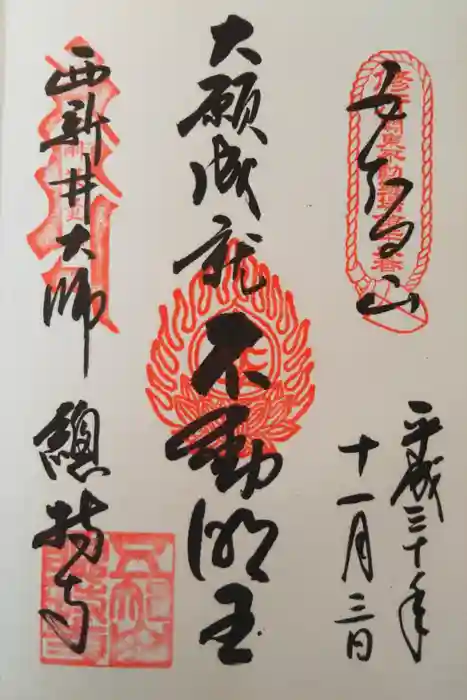 五智山
平成三十年
十一月三日
大願成就
不動明王
西新井大師
總持寺